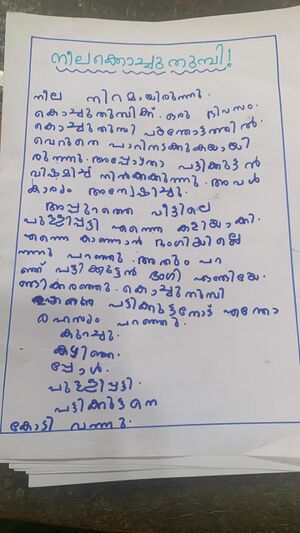 നീലക്കൊച്ചുതുമ്പി!
നീല നിറമായിരുന്നു.
കൊച്ചുതുമ്പിക്ക്. ഒരു ദിവസം.
കൊച്ചുതുമ്പി പൂന്തോട്ടത്തിൽ.
വെറുതെ പാറിനടക്കുകയായി
രുന്നു. അപ്പോഴതാ പട്ടിക്കുട്ടൻ
വിഷമിച്ച് നിൽക്കുന്നു. അവൾ
കാര്യം അന്വേഷിച്ചു.
അപ്പുറത്തെ വീട്ടിലെ
പുള്ളിപ്പട്ടി എന്നെ കളിയാക്കി.
എന്നെ കാണാൻ ഭംഗിയില്ലെ
ന്നു പറഞ്ഞു. അതും പറ
ഞ്ഞ് പട്ടിക്കുട്ടൻ
കരഞ്ഞു. കൊച്ചുതുമ്പി
പട്ടിക്കുട്ടനോട് എന്തോ
രഹസ്യം പറഞ്ഞു.
കുറച്ചു.
കഴിഞ്ഞ.
പ്പോൾ.
പുള്ളിപ്പട്ടി.
പട്ടിക്കുട്ടനെ
വന്നു.